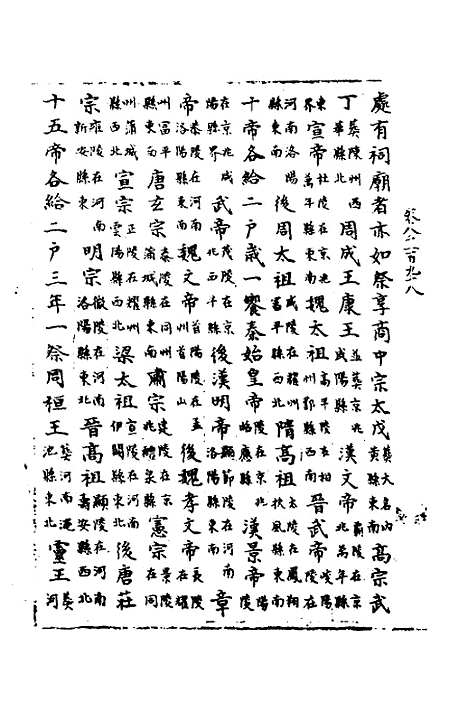 處有祠廟者亦如祭享商中宗太戊葬大名內黃縣東南高宗武
丁葬陳州西華縣北周成王康王並葬京兆咸陽縣漢文帝霸陵在京兆萬年縣
東界宣帝杜陵在京兆萬年縣東南魏太祖高平陵在相州鄴縣西南晉武帝峻陽陵在
河南洛陽縣東南後周太祖成陵在耀州富平縣隋高祖太陵在鳳翔扶風縣東南
十帝各給二戶歲一饗秦始皇帝陵在京兆昭應縣漢景帝陽陵
在京兆咸陽縣界武帝茂陵在京兆後漢明帝顯節陵在河南洛陽縣東南章
帝陵在河南洛陽縣東南魏文帝首陽陵在首陽山後魏孝文帝長陵在耀
州富平縣東南唐玄宗泰陵在同州蒲城縣東南肅宗建陵在京兆醴泉縣北憲宗景陵在同
州蒲城縣西北宣宗正陵在耀州雲陽縣西北梁太祖宣陵在河南伊闕縣東北後唐莊
宗雍陵在河南新安縣東明宗徽陵在河南洛陽縣東北晉高祖顯陵在河南壽安縣西北
十五帝各給二戶三年一祭周桓王葬河南澠池縣東北靈王葬河